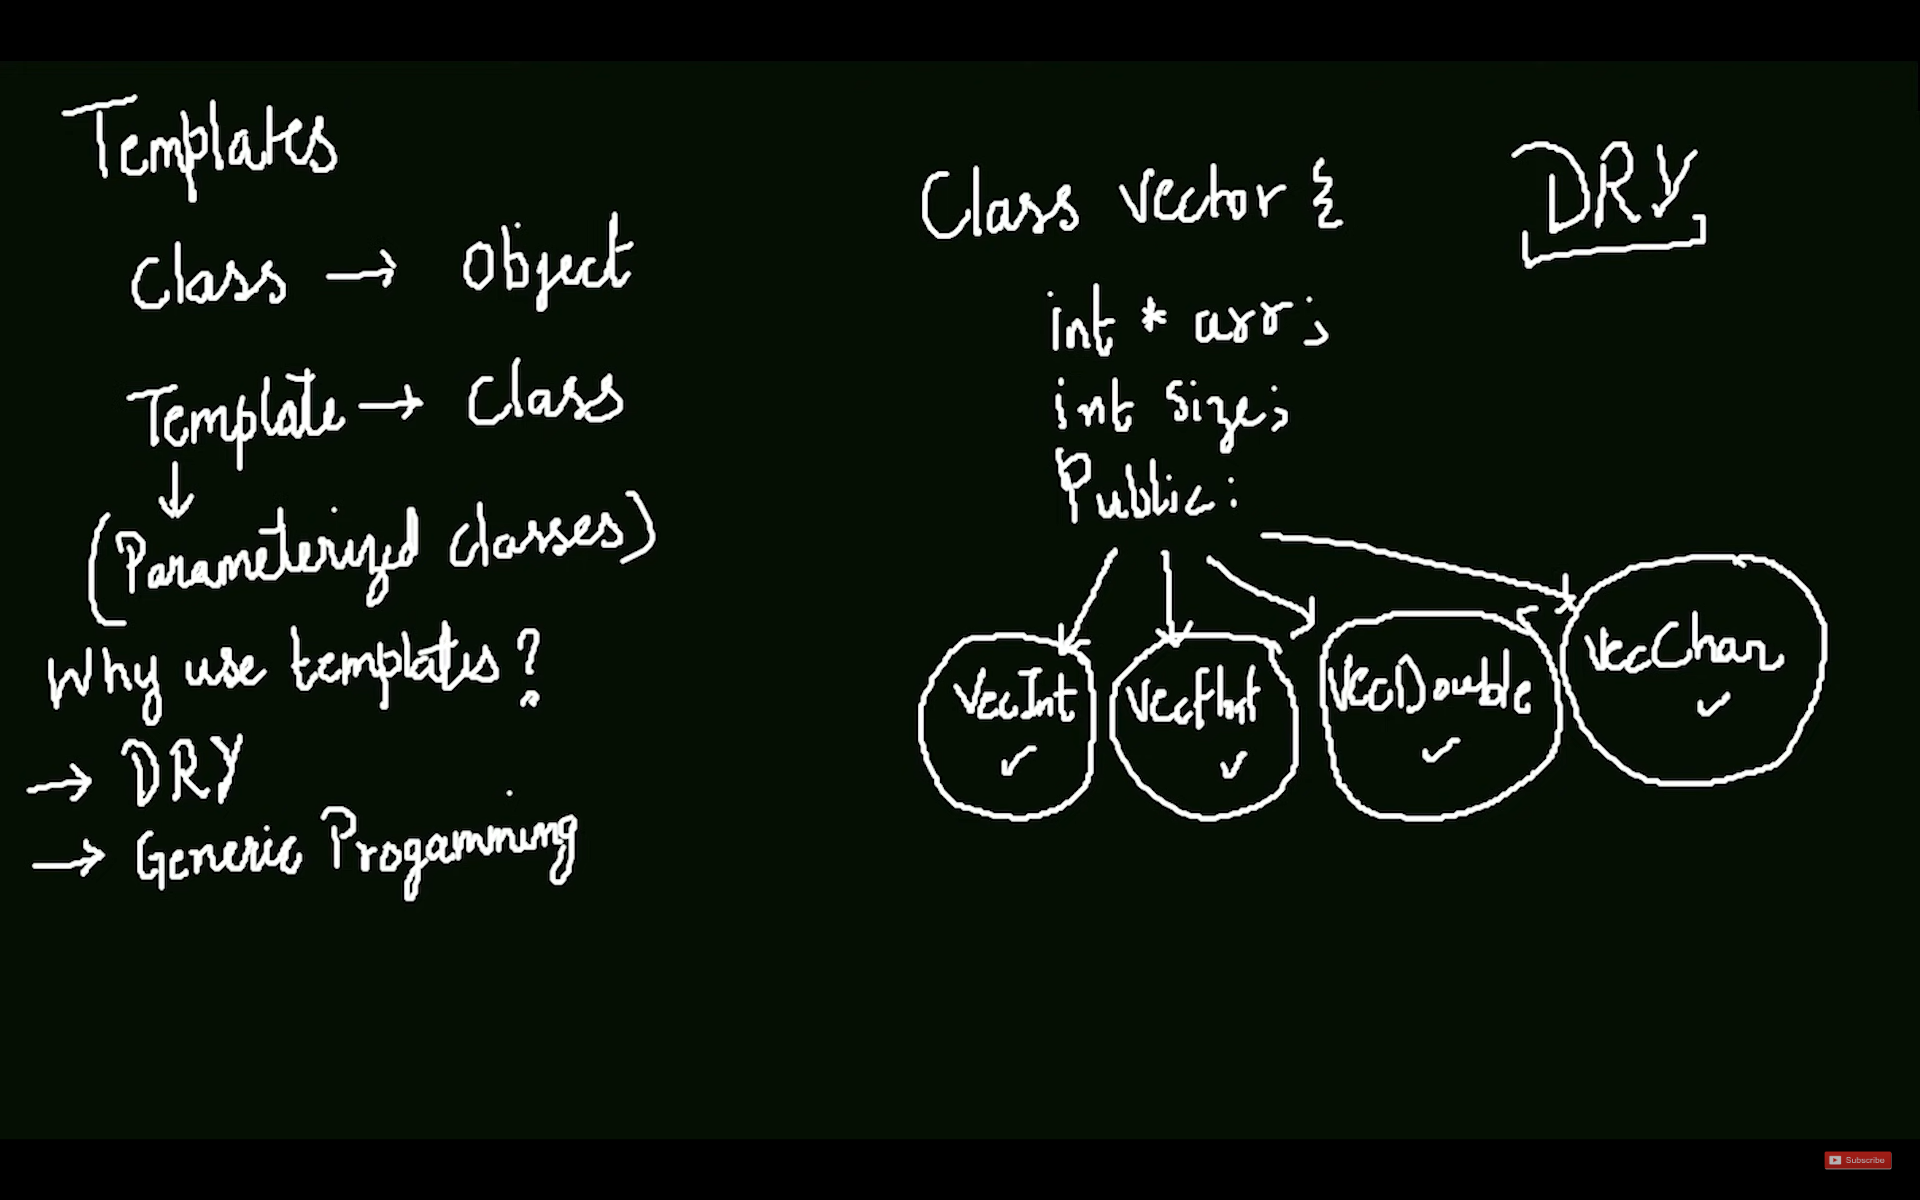 Templates
Class → Object
Template → Class
↓
(Parameterized classes)
Why use templates?
→ DRY
→ Generic Progamming
Class vector {
DRY
int * arr;
int size;
Public:
VecInt ✓
VecFloat ✓
VecDouble ✓
VecChar ✓
Subscribe